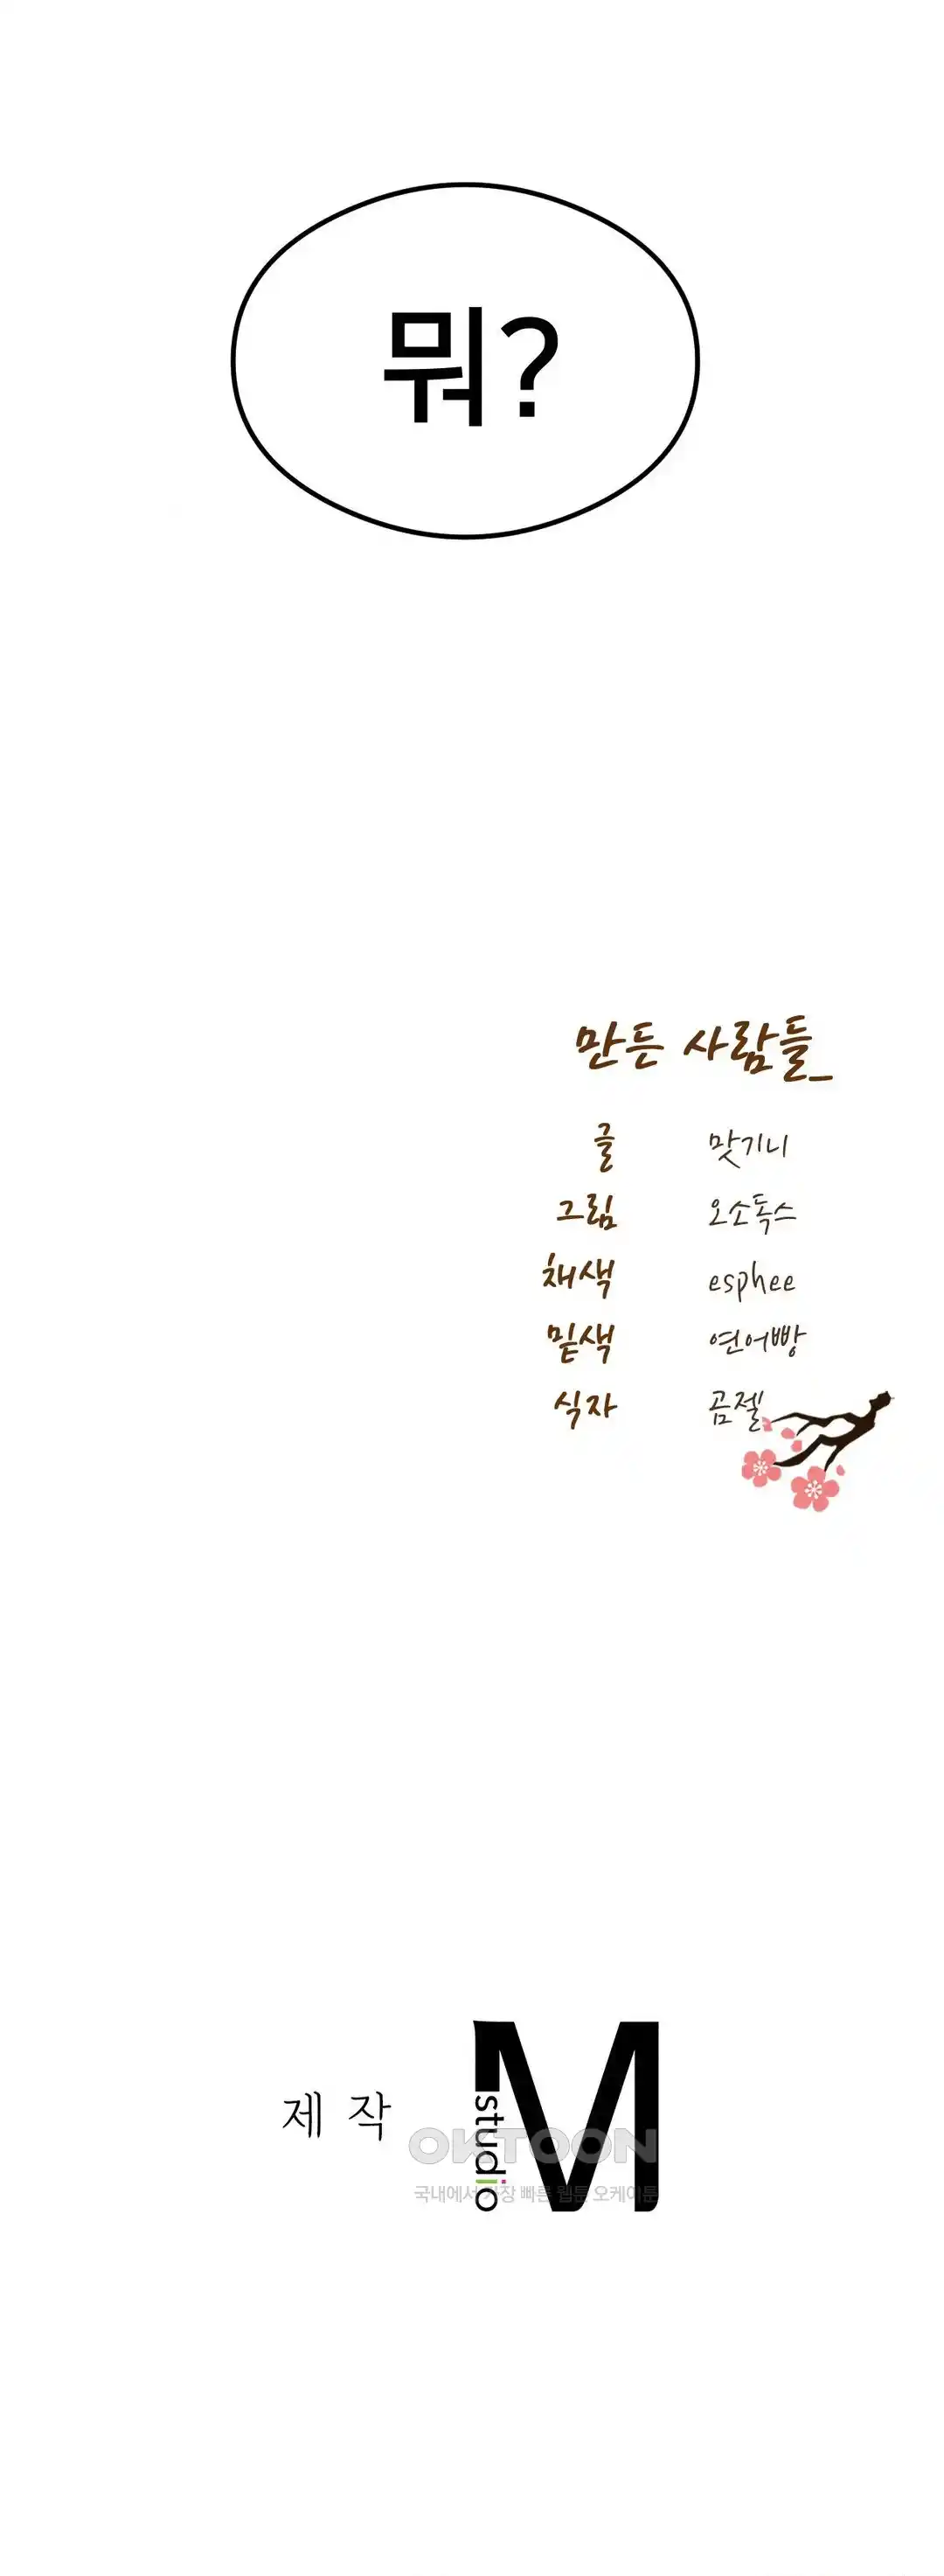 뭐?
만든 사람들_
글 맛기니
그림 오소독스
채색 esphee
밑색 연어빵
식자 곰젤
제작
M studio
OKTOON
국내에서 가장 빠른 웹툰 오케이툰